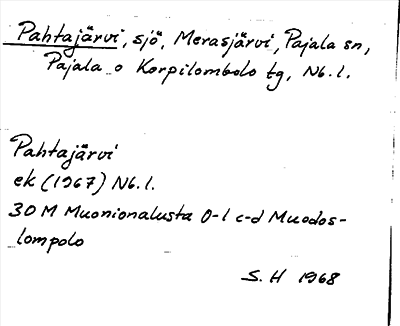 Pahtajärvi, sjö, Merasjärvi, Pajala sn,
Pajala o Korpilombolo tg, Nb. l.
Pahtajärvi
ek (1967) Nb. l.
30 M Muonionalusta 0-1 c-d Muodos-
lompolo
S. H 1968